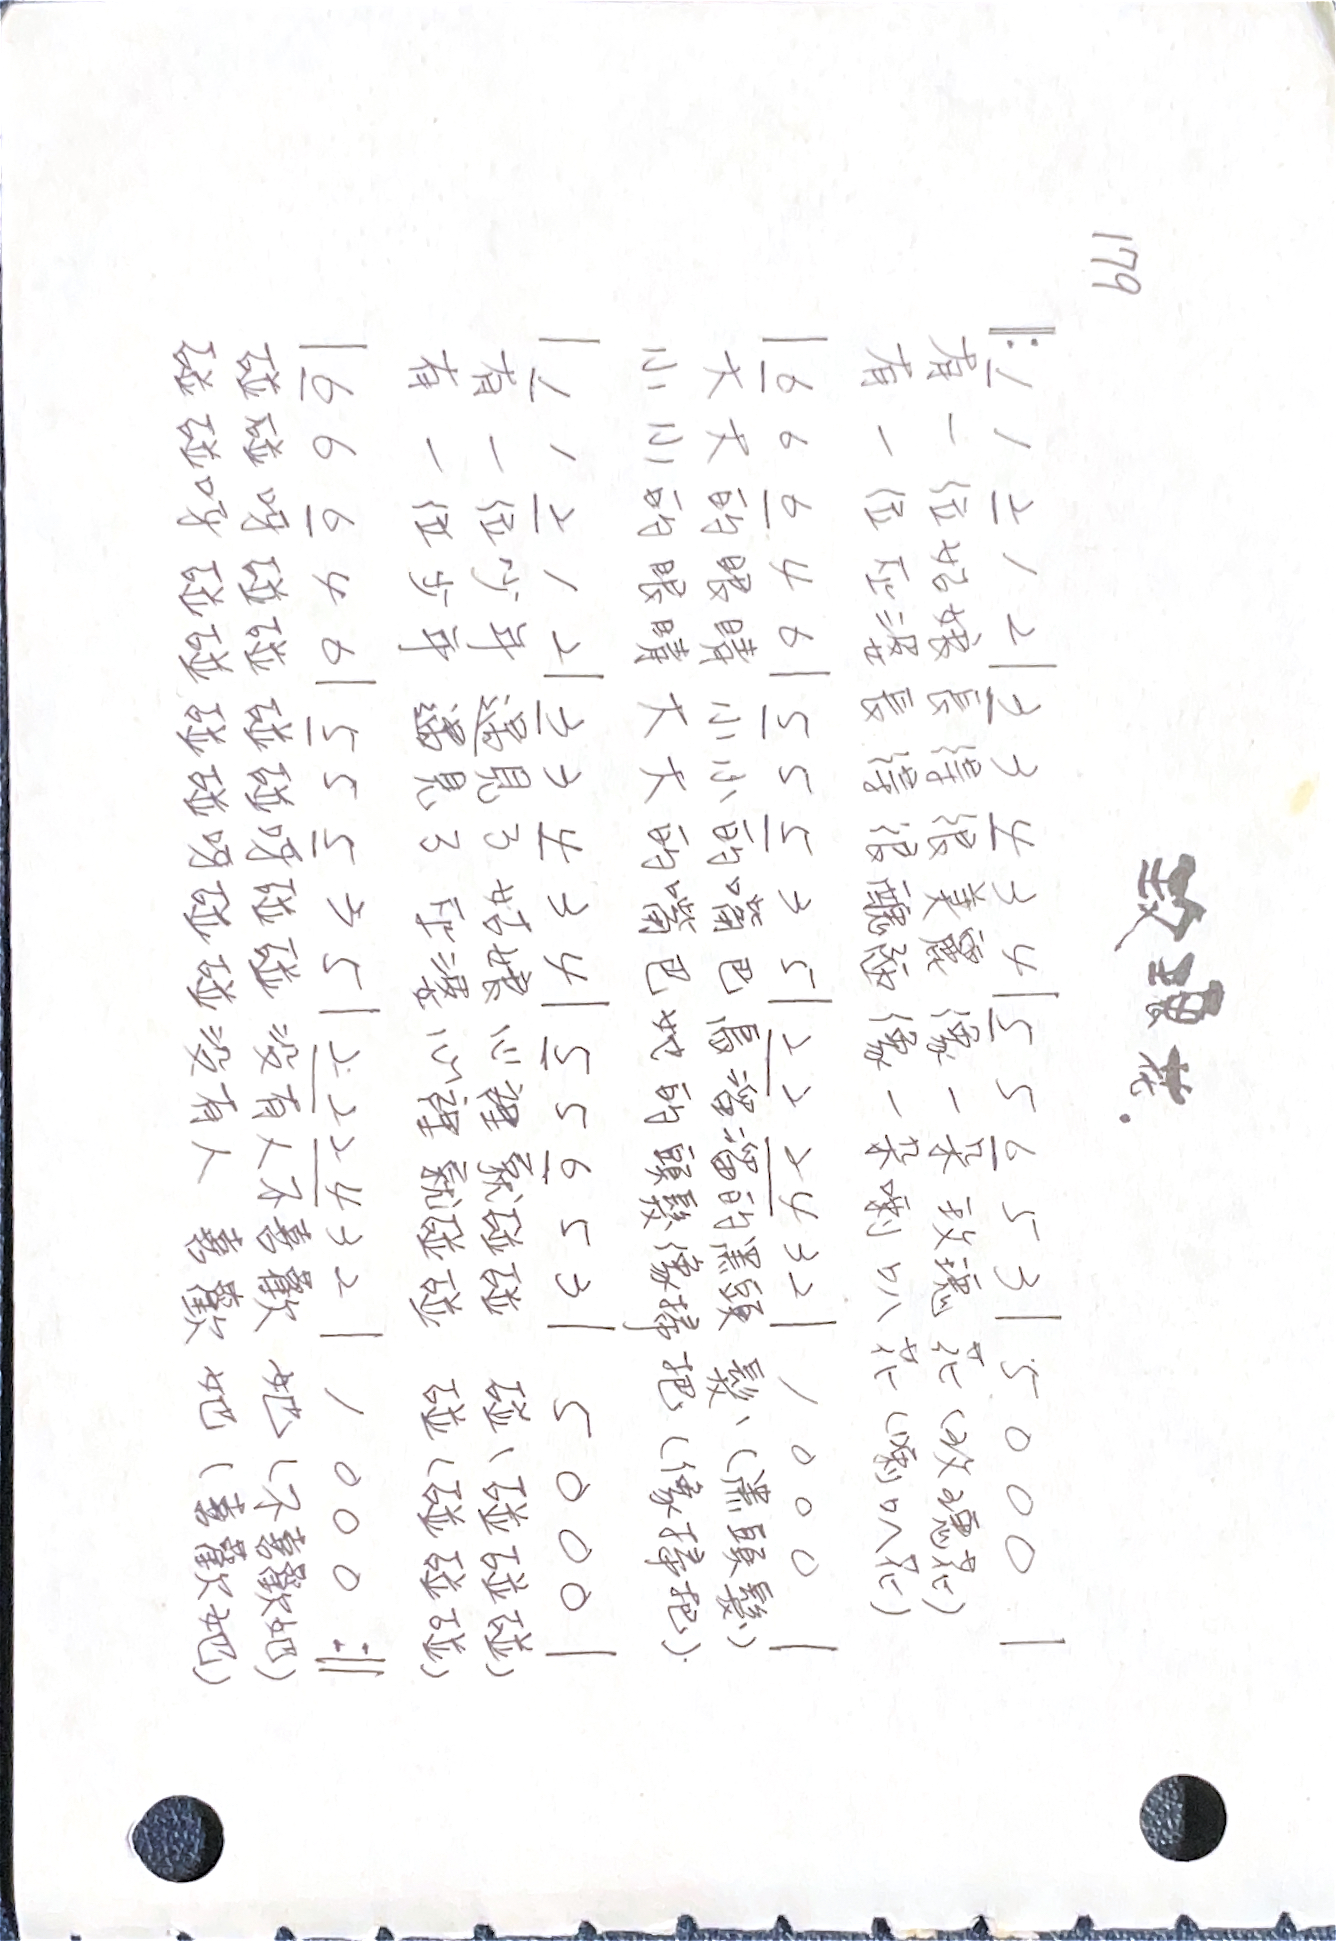 玫瑰花.
179
‖: 1 1 2 1 2 | 3 3 4 3 4 | 5 5 6 5 3 | 5 0 0 0 |
有一位姑娘長得很美麗像一朵玫瑰花(玫瑰花)
有一位巫婆長得很醜陋像一朵喇叭花(喇叭花)
| 6 6 6 4 6 | 5 5 5 3 5 | 2 2 2 4 3 2 | 1 0 0 0 |
大大的眼睛小小的嘴巴烏溜溜的黑頭髮(黑頭髮)
小小的眼睛大大的嘴巴她的頭髮像掃把(像掃把)
| 1 1 2 1 2 | 3 3 4 3 4 | 5 5 6 5 3 | 5 0 0 0 |
有一位少年遇見了姑娘心裡就碰碰碰(碰碰碰)
有一位少年遇見了巫婆心裡就碰碰碰(碰碰碰)
| 6 6 6 4 6 | 5 5 5 3 5 | 2 2 2 4 3 2 | 1 0 0 0 :‖
碰碰呀碰碰碰碰呀碰碰沒有人不喜歡她(不喜歡她)
碰碰呀碰碰碰碰呀碰碰沒有人喜歡她(喜歡她)